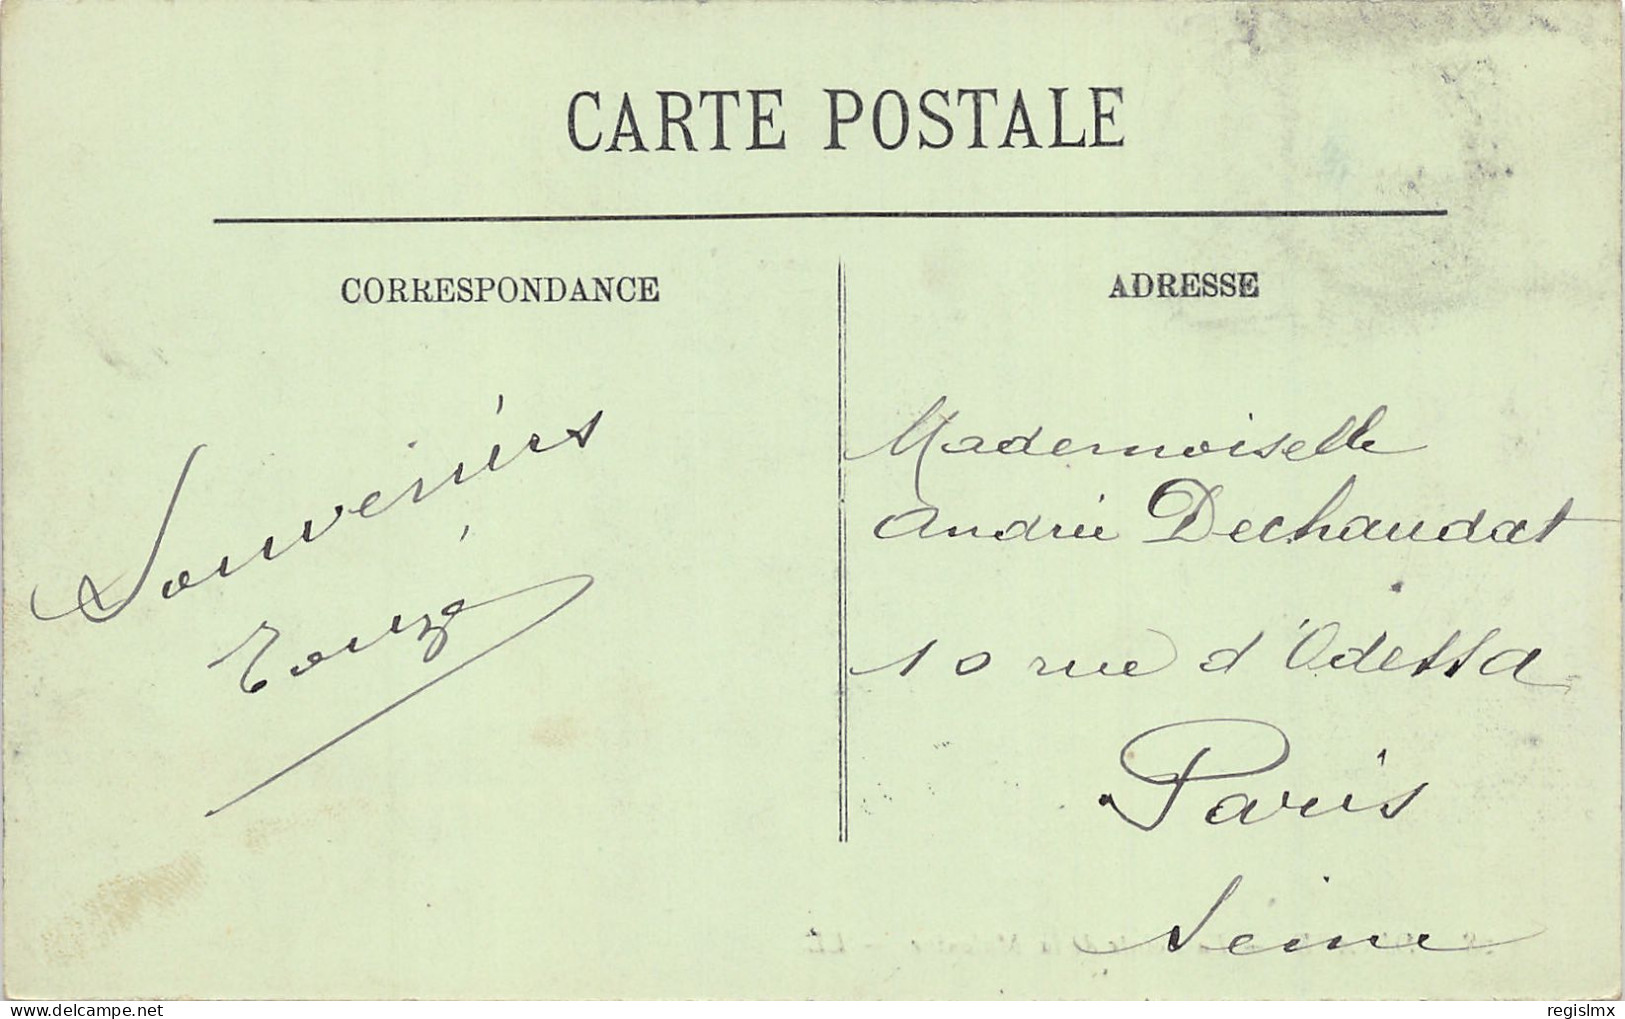 CARTE POSTALE
CORRESPONDANCE
Souvenirs
Touzé
ADRESSE
Mademoiselle
Andrée Dechaudat
10 rue d'Odessa
Paris
Seine
delcampe.net
regislmx